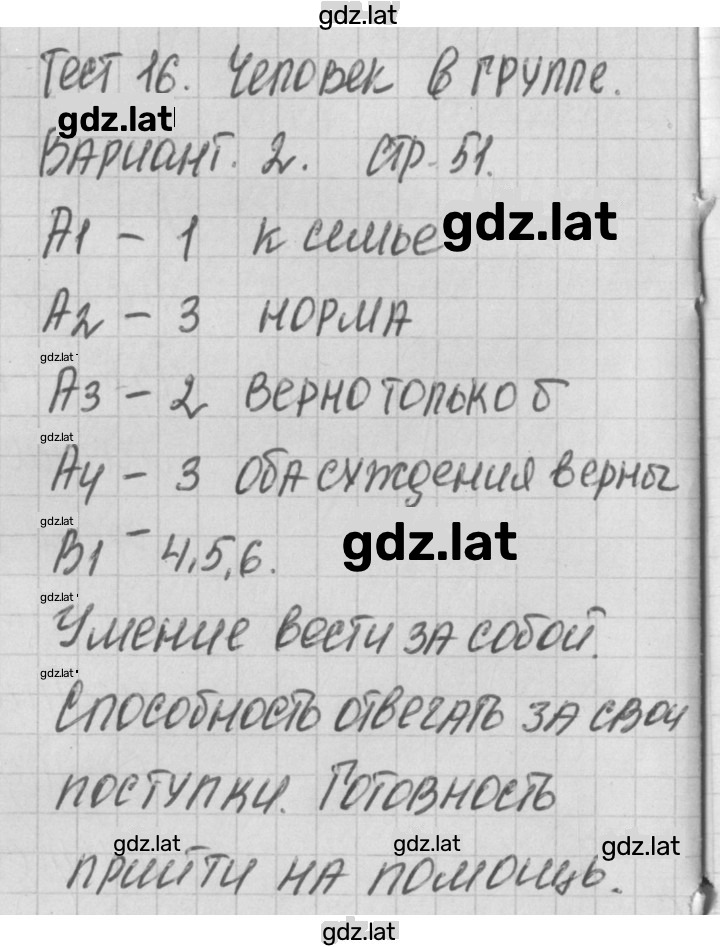 gdz.lat
Тест 16. Человек в группе.
gdz.lat
Вариант. 2. стр. 51.
А1 - 1 к семье gdz.lat
А2 - 3 норма
gdz.lat
А3 - 2 верно только б
gdz.lat
А4 - 3 оба суждения верны
gdz.lat
В1 - 4,5,6. gdz.lat
gdz.lat
Умение вести за собой.
gdz.lat
Способность отвечать за свои
поступки. Готовность
gdz.lat gdz.lat gdz.lat
прийти на помощь.
gdz.lat